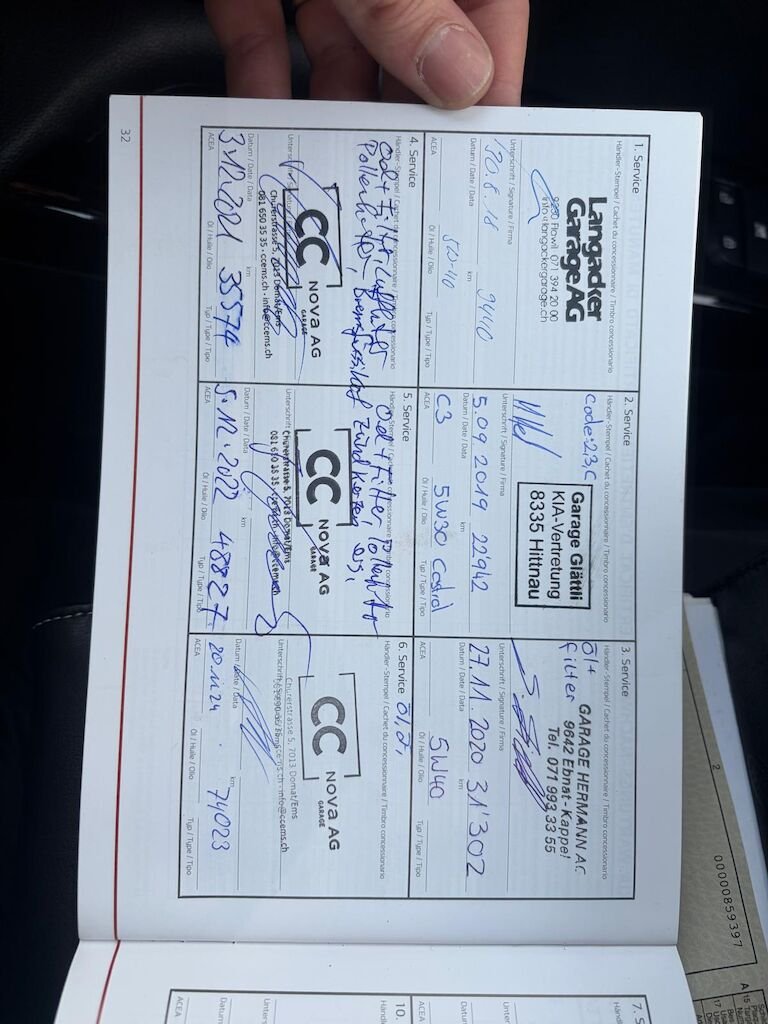 1. Service
Händler-Stempel / Cachet du concessionnaire / Timbro concessionario
Langacker
Garage AG
9230 Flawil 071 394 20 00
info@langackergarage.ch
Unterschrift / Signature / Firma
30.8.18
9410
Datum / Date / Data
km
5W-40
ACEA
Öl / Huile / Olio
Typ / Type / Tipo
2. Service
Händler-Stempel / Cachet du concessionnaire / Timbro concessionario
Code: 2,3,C
Garage Glättli
KIA-Vertretung
8335 Hittnau
Unterschrift / Signature / Firma
5.09.2019 22'942
Datum / Date / Data
km
C3 5W30 Castrol
ACEA
Öl / Huile / Olio
Typ / Type / Tipo
3. Service
Händler-Stempel / Cachet du concessionnaire / Timbro concessionario
Öl+
Filter
GARAGE HERMANN AG
9642 Ebnat-Kappel
Tel. 071 993 33 55
Unterschrift / Signature / Firma
27.11.2020 31'302
Datum / Date / Data
km
5W40
ACEA
Öl / Huile / Olio
Typ / Type / Tipo
4. Service
Händler-Stempel / Cachet du concessionnaire / Timbro concessionario
Oel+Filter, Luftfilter
Pollenfilter, Bremsflüssikeit, Zündkerzen
CC
NOVA AG
GARAGE
Churerstrasse 5, 7013 Domat/Ems
081 650 35 35 · ccems.ch · info@ccems.ch
Unterschrift / Signature / Firma
Datum / Date / Data
km
3.12.2021 35574
ACEA
Öl / Huile / Olio
Typ / Type / Tipo
5. Service
Händler-Stempel / Cachet du concessionnaire / Timbro concessionario
Oel+Filter, Pollenfilter
CC
NOVA AG
GARAGE
Churerstrasse 5, 7013 Domat/Ems
081 650 35 35 · ccems.ch · info@ccems.ch
Unterschrift
Datum / Date / Data
km
5.12.2022 48827
ACEA
Öl / Huile / Olio
Typ / Type / Tipo
6. Service
Händler-Stempel / Cachet du concessionnaire / Timbro concessionario
CC
NOVA AG
GARAGE
Churerstrasse 5, 7013 Domat/Ems
info@ccems.ch
Unterschrift
Datum / Date / Data
km
20.11.24 74023
ACEA
Öl / Huile / Olio
Typ / Type / Tipo
32
7. S
Händl
Unter
Datum
ACEA
10.
Händl
Unters
Datum
ACEA
2
00000859397
A
15
17